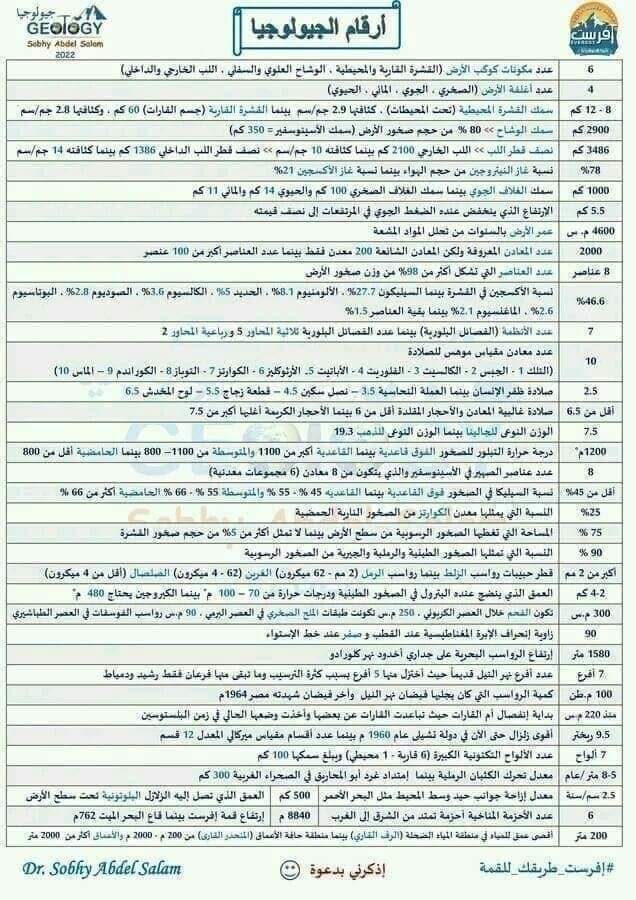 جيولوجيا
GEOLOGY
Sobhy Abdel Salam
2022
أرقام الجيولوجيا
إفرست
EVEREST
6 عدد مكونات كوكب الأرض (القشرة القارية والمحيطية ، الوشاح العلوي والسفلي ، اللب الخارجي والداخلي)
4 عدد أغلفة الأرض (الصخري ، الجوي ، المائي ، الحيوي)
8 - 12 كم سمك القشرة المحيطية (تحت المحيطات) ، كثافتها 2.9 جم/سم بينما القشرة القارية (جسم القارات) 60 كم ، وكثافتها 2.8 جم/سم
2900 كم سمك الوشاح >> 80 % من حجم صخور الأرض (سمك الأسينوسفير = 350 كم)
3486 كم نصف قطر اللب >> اللب الخارجي 2100 كم بينما كثافته 10 جم/سم >> نصف قطر اللب الداخلي 1386 كم بينما كثافته 14 جم/سم
78% نسبة غاز النيتروجين من حجم الهواء بينما نسبة غاز الأكسجين 21%
1000 كم سمك الغلاف الجوي بينما سمك الغلاف الصخري 100 كم والحيوي 14 كم والمائي 11 كم
5.5 كم الإرتفاع الذي ينخفض عنده الضغط الجوي في المرتفعات إلى نصف قيمته
4600 م. س عمر الأرض بالسنوات من تحلل المواد المشعة
2000 عدد المعادن المعروفة ولكن المعادن الشائعة 200 معدن فقط بينما عدد العناصر أكبر من 100 عنصر
8 عناصر عدد العناصر التي تشكل أكثر من 98% من وزن صخور الأرض
46.6% نسبة الأكسجين في القشرة بينما السيليكون 27.7% ، الألومنيوم 8.1% ، الحديد 5% ، الكالسيوم 3.6% ، الصوديوم 2.8% ، البوتاسيوم
2.6% ، الماغنسيوم 2.1% بينما بقية العناصر 1.5%
7 عدد الأنظمة (الفصائل البلورية) بينما عدد الفصائل البلورية ثلاثية المحاور 5 و رباعية المحاور 2
10 عدد معادن مقياس موهس للصلادة
(التلك 1 - الجبس 2 - الكالسيت 3 - الفلوريت 4 - الأباتيت 5- الأرثوكليز 6 - الكوارتز 7 - التوباز 8 - الكوراندم 9 - الماس 10)
2.5 صلادة ظفر الإنسان بينما العملة النحاسية 3.5 – نصل سكين 4.5 – قطعة زجاج 5.5 – لوح المخدش 6.5
أقل من 6.5 صلادة غالبية المعادن والأحجار المقلدة أقل من 6 بينما الأحجار الكريمة أغلبها أكبر من 7.5
7.5 الوزن النوعي للجالينا بينما الوزن النوعي للذهب 19.3
1200م° درجة حرارة التبلور للصخور الفوق قاعدية بينما القاعدية أكبر من 1100 والمتوسطة من 1100– 800 بينما الحامضية أقل من 800
8 عدد عناصر الصهير في الأسينوسفير والذي يتكون من 8 معادن (6 مجموعات معدنية)
أقل من 45% نسبة السيليكا في الصخور فوق القاعدية بينما القاعديه 45 % - 55 % والمتوسطة 55 % - 66 % الحامضية أكثر من 66 %
25% النسبة التي يمثلها معدن الكوارتز من الصخور النارية الحمضية
75 % المساحة التي تغطيها الصخور الرسوبية من سطح الأرض بينما لا تمثل أكثر من 5% من حجم صخور القشرة
90 % النسبة التي تمثلها الصخور الطينية والرملية والجيرية من الصخور الرسوبية
أكبر من 2 مم قطر حبيبات رواسب الزلط بينما رواسب الرمل (2 مم - 62 ميكرون) الغرين (62 - 4 ميكرون) الصلصال (أقل من 4 ميكرون)
4-2 كم العمق الذي ينضج عنده البترول في الصخور الطينية ودرجات حرارة من 70 – 100 م° بينما الكيروجين يحتاج 480 م°
300 م.س تكون الفحم خلال العصر الكربوني ، 250 م.س تكونت طبقات الملح الصخري في العصر البرمي ، 90 م.س رواسب الفوسفات في العصر الطباشيري
90 زاوية إنحراف الإبرة المغناطيسية عند القطب و صفر عند خط الإستواء
1580 متر إرتفاع الرواسب البحرية على جداري أخدود نهر كلورادو
7 أفرع عدد أفرع نهر النيل قديماً حيث أختزل منها 5 أفرع بسبب كثرة الترسيب وما تبقى منها فرعان فقط رشيد ودمياط
100 م.طن كمية الرواسب التي كان يجلبها فيضان نهر النيل وآخر فيضان شهدته مصر 1964م
منذ 220 م.س بداية إنفصال أم القارات حيث تباعدت القارات عن بعضها وأخذت وضعها الحالي في زمن البلستوسين
9.5 ريختر أقوى زلزال حتى الآن في دولة تشيلى عام 1960 م بينما عدد أقسام مقياس ميركالي المعدل 12 قسم
7 ألواح عدد الألواح التكتونية الكبيرة (6 قارية - 1 محيطي) ويبلغ سمكها 100 كم
8-5 متر /عام معدل تحرك الكثبان الرملية بينما إمتداد غرد أبو المحاريق في الصحراء الغربية 300 كم
2.5 سم/سنة معدل إزاحة جوانب حيد وسط المحيط مثل البحر الأحمر 500 كم العمق الذي تصل إليه الزلازل البلوتونية تحت سطح الأرض
6 عدد الأحزمة المناخية أحزمة تمتد من الشرق إلى الغرب 8840 م إرتفاع قمة إفرست بينما قاع البحر الميت 762م
200 متر أقصى عمق للمياه في منطقة المياه الضحلة (الرف القاري) بينما منطقة حافة الأعماق (المنحدر القارى) من 200 م - 2000 م والأعماق أكثر من 2000 متر
#إفرست_طريقك_للقمة
إذكرني بدعوة
Dr. Sobhy Abdel Salam